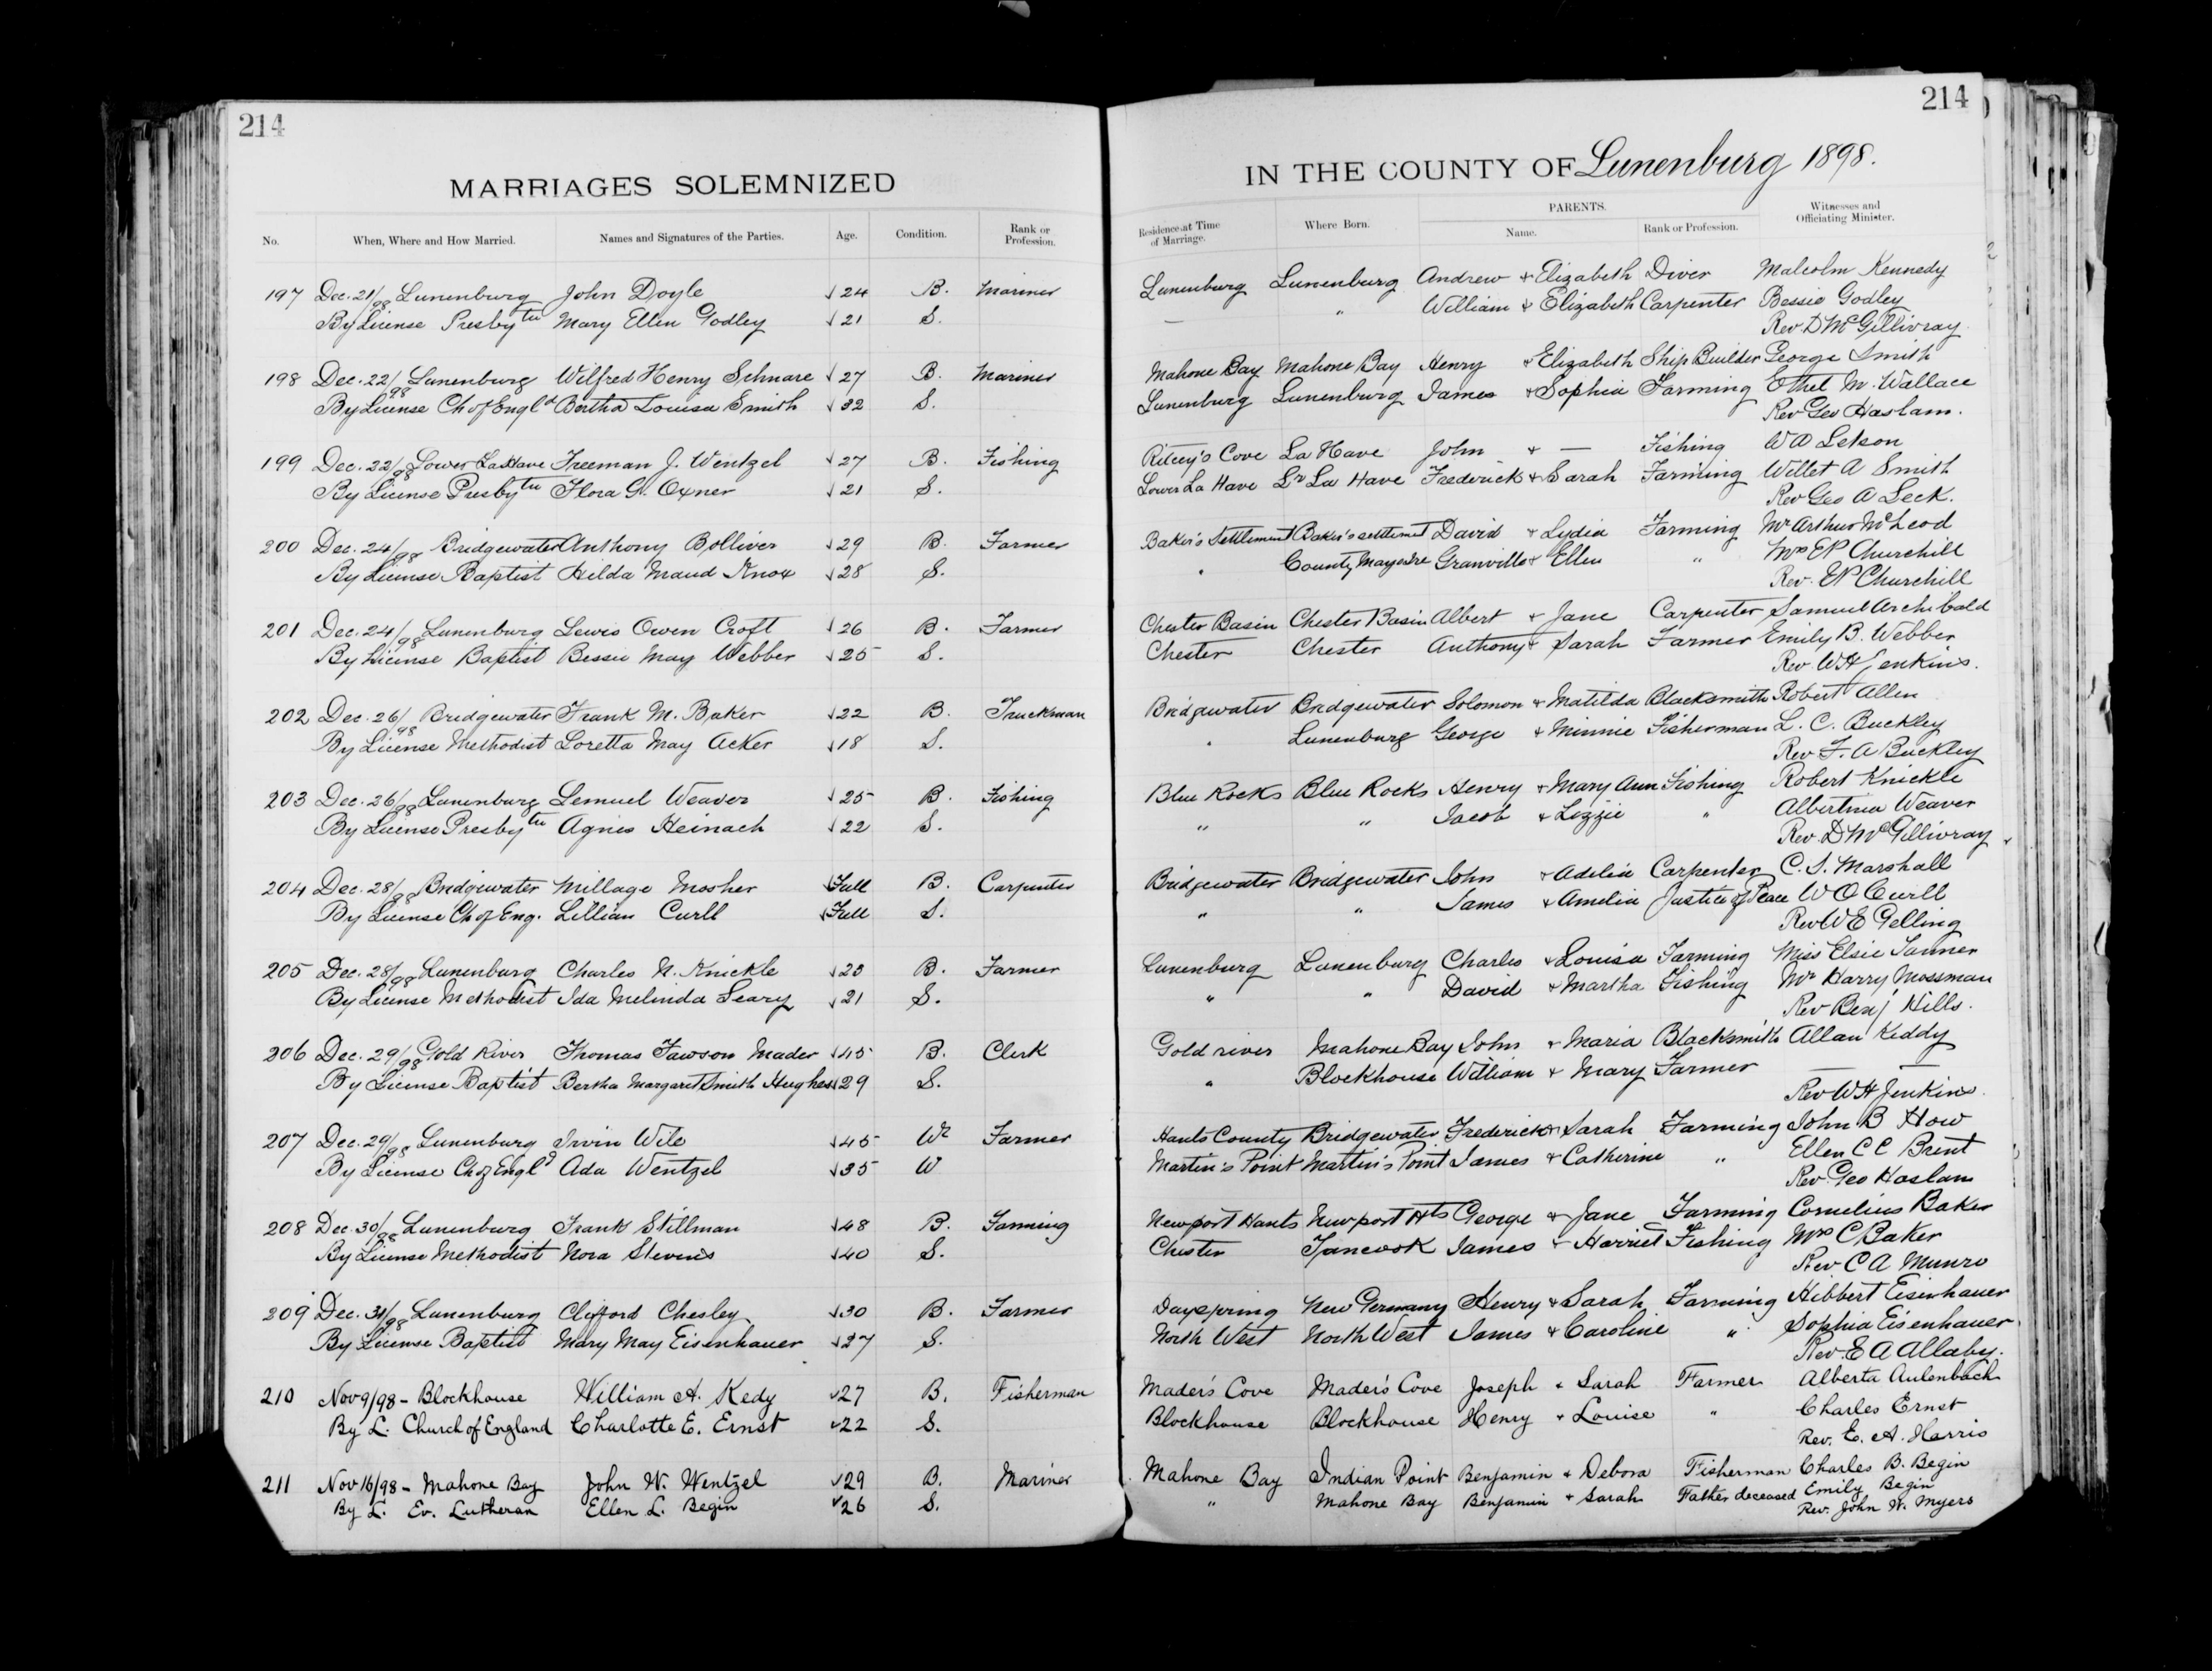 214
214
MARRIAGES SOLEMNIZED IN THE COUNTY OF Lunenburg 1898.
No. When, Where and How Married. Names and Signatures of the Parties. Age. Condition. Rank or Profession. Residence at Time of Marriage. Where Born. PARENTS. Name. Rank or Profession. Witnesses and Officiating Minister.
197 Dec. 21/98 Lunenburg John Doyle 24 B. Mariner Lunenburg Lunenburg Andrew & Elizabeth Diver Malcolm Kennedy
By License Presbytn Mary Ellen Godley 21 S. — " William & Elizabeth Carpenter Bessie Godley
Rev D McGillivray
198 Dec. 22/98 Lunenburg Wilfred Henry Schnare 27 B. Mariner Mahone Bay Mahone Bay Henry & Elizabeth Ship Builder George Smith
By License Ch of Engld Bertha Louisa Smith 32 S. Lunenburg Lunenburg James & Sophia Farming Ethel M. Wallace
Rev Geo Haslam.
199 Dec. 22/98 Lower LaHave Freeman J. Wentzel 27 B. Fishing Ritcey's Cove La Have John & — Fishing W A Letson
By License Presbytn Flora G. Oxner 21 S. Lower La Have Lr La Have Frederick & Sarah Farming Willet A Smith
Rev Geo A Leck.
200 Dec. 24/98 Bridgewater Anthony Bolliver 29 B. Farmer Baker's Settlement Baker's settlement David & Lydia Farming Mr Arthur McLeod
By License Baptist Hilda Maud Knox 28 S. " County Granville & Ellen " Mrs EP Churchill
Rev. EP Churchill
201 Dec. 24/98 Lunenburg Lewis Owen Croft 26 B. Farmer Chester Basin Chester Basin Albert & Jane Carpenter Samuel Archibald
By License Baptist Bessie May Webber 25 S. Chester Chester Anthony & Sarah Farmer Emily B. Webber
Rev WH Jenkins.
202 Dec. 26/98 Bridgewater Frank M. Baker 22 B. Truckman Bridgewater Bridgewater Solomon & Matilda Blacksmith Robert Allen
By License Methodist Loretta May Acker 18 S. " Lunenburg George & Minnie Fisherman L. C. Buckley
Rev F. A Buckley
203 Dec. 26/98 Lunenburg Lemuel Weaver 25 B. Fishing Blue Rocks Blue Rocks Henry & Mary Ann Fishing Robert Knickle
By License Presbytn Agnes Heinach 22 S. " " Jacob & Lizzie " Albertina Weaver
Rev. D McGillivray
204 Dec. 28/98 Bridgewater Millage Mosher Full B. Carpenter Bridgewater Bridgewater John & Adelia Carpenter C. S. Marshall
By License Ch of Eng. Lillian Curll Full S. " " James & Amelia Justice of Peace W O Curll
Rev W E Gelling
205 Dec. 28/98 Lunenburg Charles N. Knickle 23 B. Farmer Lunenburg Lunenburg Charles & Louisa Farming Miss Elsie Tanner
By License Methodist Ida Melinda Seary 21 S. " " David & Martha Fishing Mr Harry Mossman
Rev Benj Hills.
206 Dec. 29/98 Gold River Thomas Fawson Mader 45 B. Clerk Gold river Mahone Bay John & Maria Blacksmith Allan Keddy
By License Baptist Bertha Margaret Smith Hughes 29 S. " Blockhouse William & Mary Farmer — —
Rev WH Jenkins.
207 Dec. 29/98 Lunenburg Irvin Wile 45 Wr Farmer Hants County Bridgewater Frederick & Sarah Farming John B How
By License Ch of Engld Ada Wentzel 35 W Martin's Point Martin's Point James & Catherine " Ellen C C Brent
Rev. Geo Haslam
208 Dec. 30/98 Lunenburg Frank Stillman 48 B. Farming Newport Hants Newport Hts George & Jane Farming Cornelius Baker
By License Methodist Nora Stevens 40 S. Chester Tancook James & Harriet Fishing Mrs C Baker
Rev C A Munro
209 Dec. 31/98 Lunenburg Clifford Chesley 30 B. Farmer Dayspring New Germany Henry & Sarah Farming Hibbert Eisenhauer
By License Baptist Mary May Eisenhauer 27 S. North West North West James & Caroline " Sophia Eisenhauer
Rev. E A Allaby.
210 Nov 9/98 - Blockhouse William A. Kedy 27 B. Fisherman Mader's Cove Mader's Cove Joseph & Sarah Farmer Alberta Aulenbach
By L. Church of England Charlotte E. Ernst 22 S. Blockhouse Blockhouse Henry & Louise " Charles Ernst
Rev. E. A. Harris
211 Nov 16/98 - Mahone Bay John W. Wentzel 29 B. Mariner Mahone Bay Indian Point Benjamin & Debora Fisherman Charles B. Begin
By L. Ev. Lutheran Ellen L. Begin 26 S. " Mahone Bay Benjamin & Sarah Father deceased Emily Begin
Rev. John W. Myers